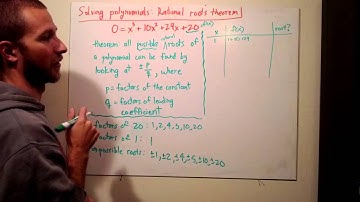 Solving polynomials: Rational roots theorem
0 = x³ + 10x² + 29x + 20
f(x)
theorem: all possible rational roots of
a polynomial can be found by
looking at ± p/q, where
p = factors of the constant
q = factors of leading
coefficient
factors of 20: 1, 2, 4, 5, 10, 20
factors of 1: 1
possible roots: ±1, ±2, ±4, ±5, ±10, ±20
x f(x) root?
1 1+10+29